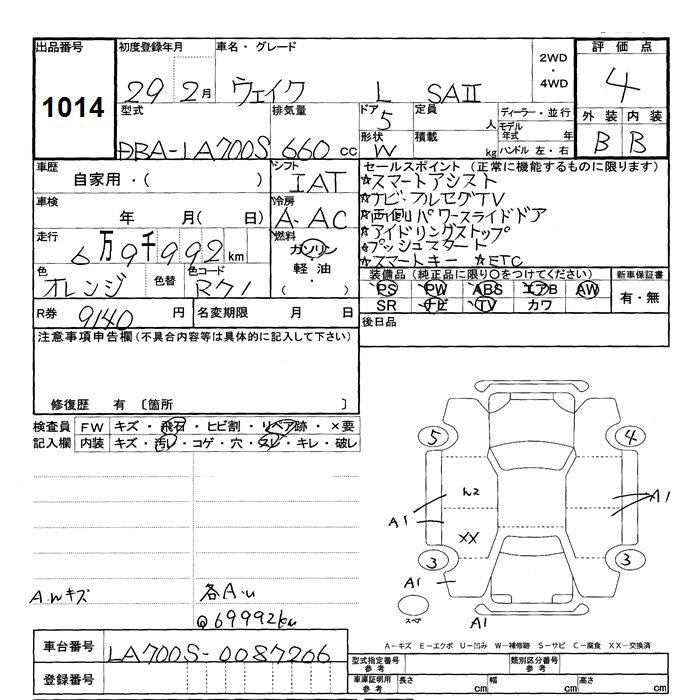 出品番号
1014
初度登録年月
29 2月
車名・グレード
ウェイク L SAII
2WD
・
4WD
評価点
4
外装 内装
B B
型式
DBA-LA700S
排気量
660 cc
ドア 5
形状 W
定員 人
積載 kg
ディーラー・並行
モデル年式 年
ハンドル 左・右
車歴
自家用・( )
シフト
IAT
車検
年 月( 日)
冷房
A-AC
走行
6万9千992km
燃料
ガソリン
軽油
・
( )
色
オレンジ
色替
色コード
R71
R券 9140 円
名変期限 月 日
セールスポイント (正常に機能するものに限ります)
☆スマートアシスト
☆ナビ・フルセグTV
☆両側パワースライドドア
☆アイドリングストップ
☆プッシュスタート
☆スマートキー ☆ETC
装備品 (純正品に限り〇をつけてください)
新車保証書
PS PW ABS エアB AW
SR ナビ TV カワ
有・無
後日品
注意事項申告欄 (不具合内容等は具体的に記入して下さい)
修復歴 有 〔箇所 〕
検査員記入欄
FW キズ・飛石・ヒビ割・リペア跡・×要
内装 キズ・汚レ・コゲ・穴・スレ・キレ・破レ
A.Wキズ
各A.U
Q69992km
5
4
A1
W2
XX
A1
3
3
A1
スペア
A1
A-キズ E-エクボ U-凹み W-補修跡 S-サビ C-腐食 XX-交換済
車台番号
LA700S-0087206
登録番号
型式指定番号 参考
類別区分番号 参考
車庫証明用 参考
長さ cm
幅 cm
高さ cm